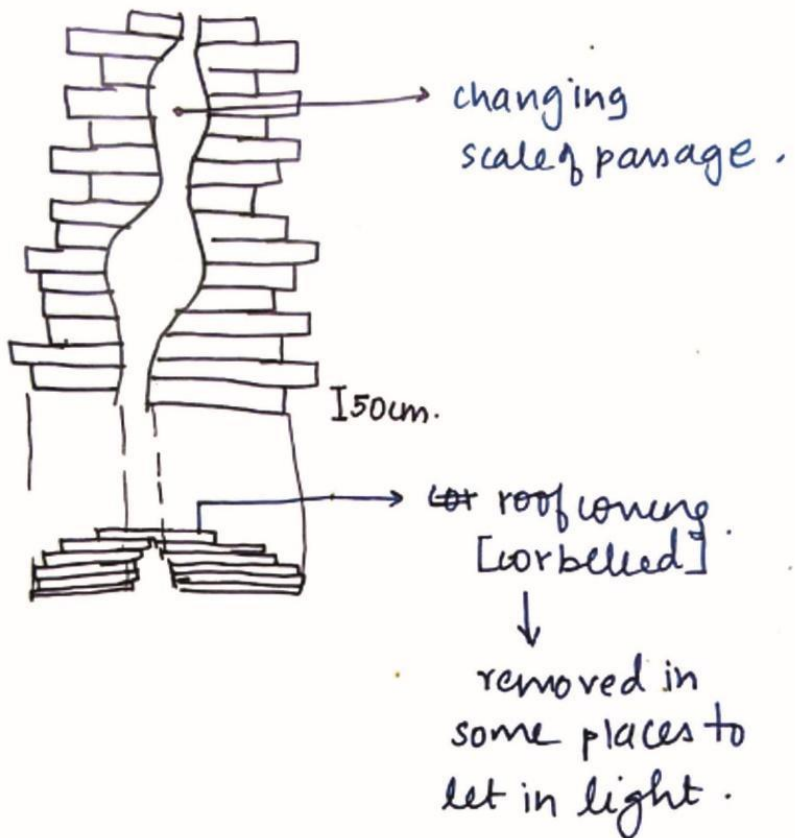 changing
scale of passage.
I50cm.
cor roof covering.
[corbelled]
removed in
some places to
let in light.